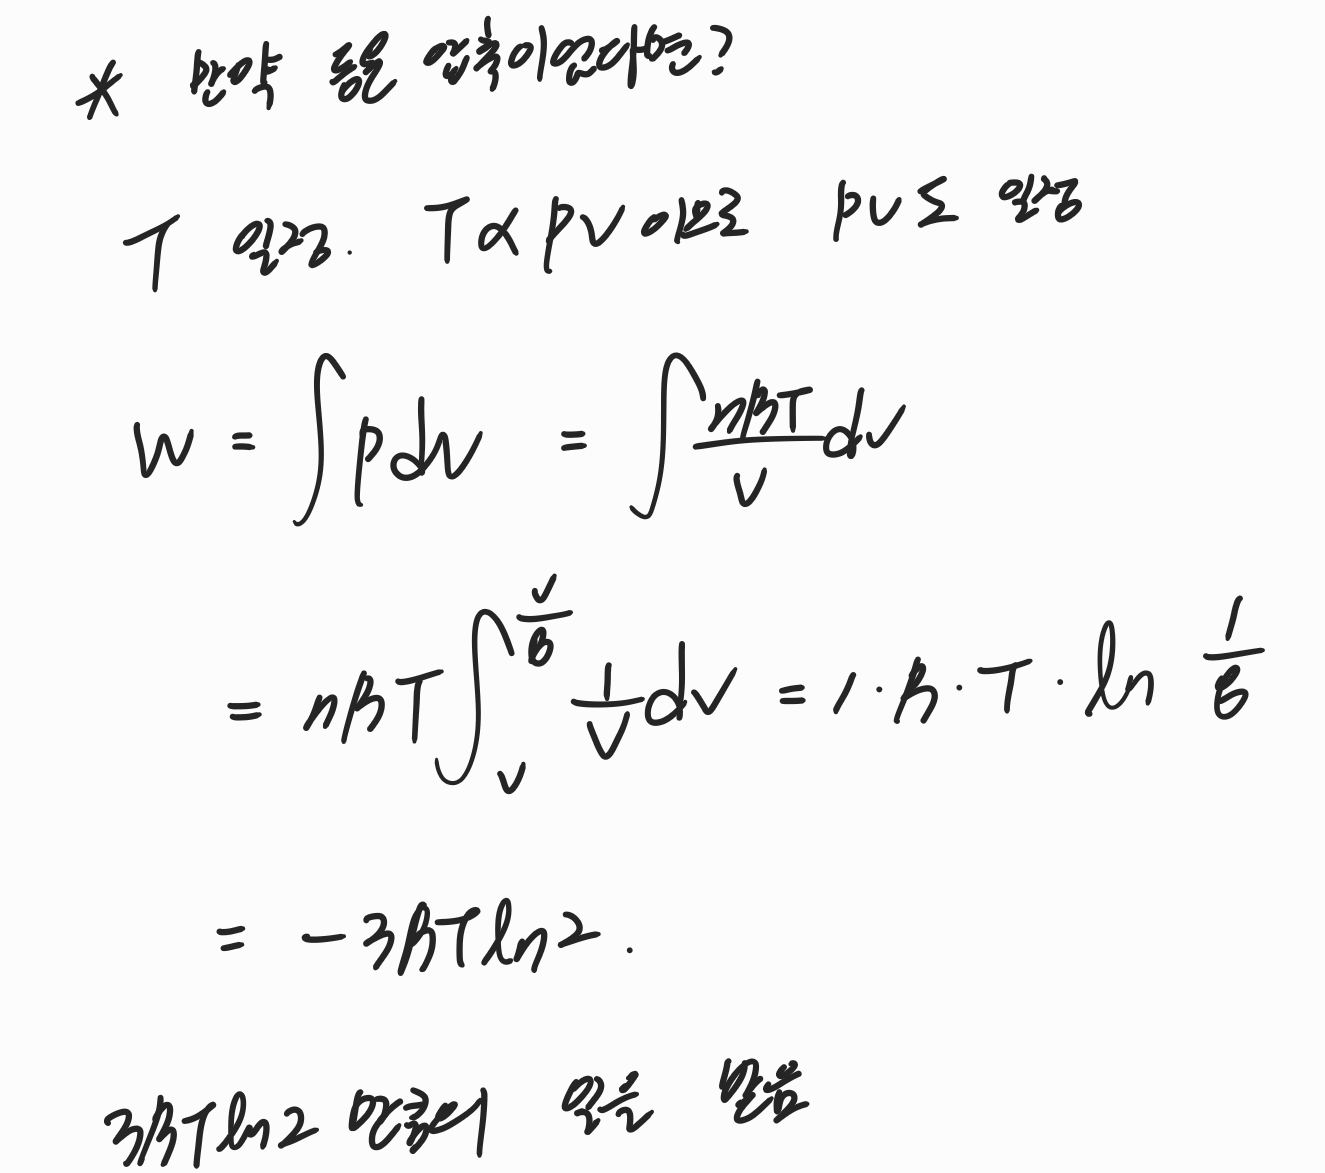 * 만약 등온 압축이였다면?
T 일정. T ∝ PV 이므로 PV도 일정
W = ∫ P dV = ∫ nRT/V dV
= nRT ∫_V^{V/8} 1/V dV = 1 · R · T · ln 1/8
= -3RT ln2.
3RT ln2 만큼의 일을 받음